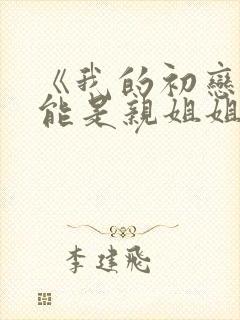 《我的初戀
能是親姐姐
李建飛